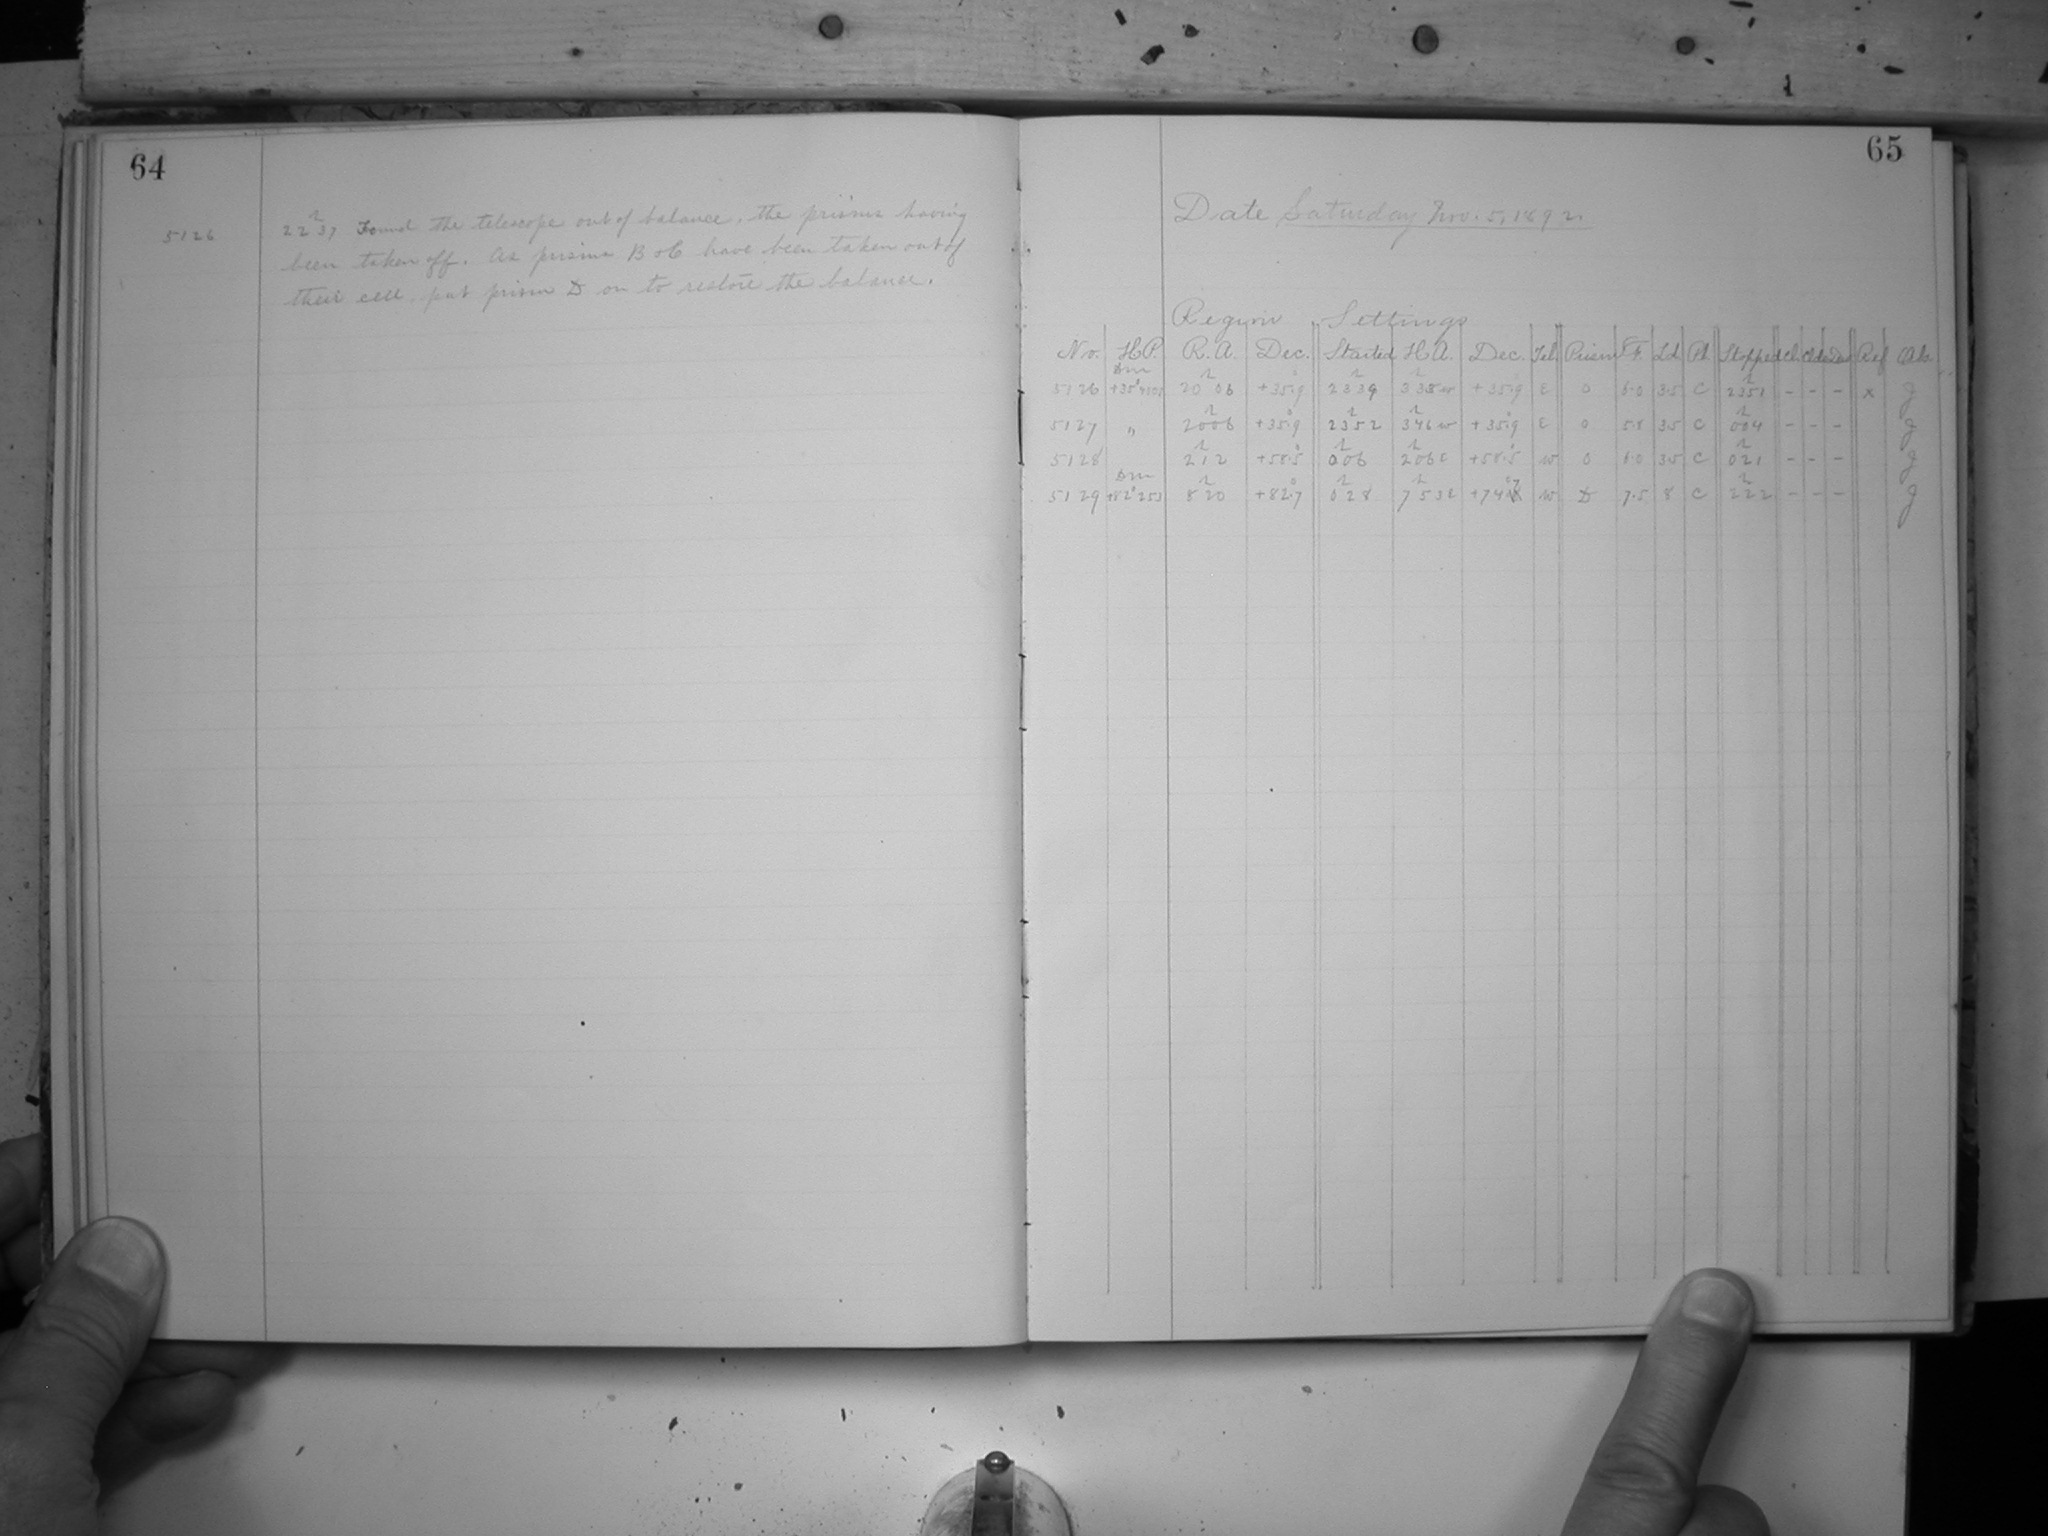 64
5126 22h37 Found the telescope out of balance, the prisms having
been taken off. As prisms B & C have been taken out of
their cell, put prism D on to restore the balance.
65
Date Saturday Nov. 5, 1892.
Region Settings
No. H.P. R.A. Dec. Started H.A. Dec. Tel. Prism F. Ld Pl Stopped Ch Clk Ref Obs
DM
5126 20h06 +35°.9 23h39 3h38w +35°.9 E 0 6.0 35 C 23h51 - - - x J
5127 " 20h06 +35°.9 23h52 3h46w +35°.9 E 0 5.8 35 C 0h04 - - - J
5128 2h12 +58°.5 0h06 2h06E +58°.5 w 0 6.0 35 C 0h21 - - - J
DM
5129 +82°253 8h20 +82°.7 0h28 7h53E w D 7.5 8 C 2h22 - - - J